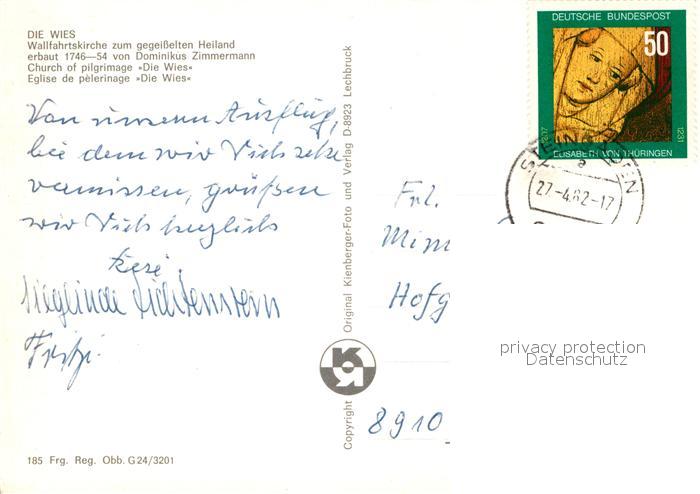 DIE WIES
Wallfahrtskirche zum gegeißelten Heiland
erbaut 1746—54 von Dominikus Zimmermann
Church of pilgrimage »Die Wies«
Eglise de pèlerinage »Die Wies«
Von unserm Ausflug,
bei dem wir Dich sehr
vermissen, grüßen
wir Dich herzlich
Resi.
Sieglinde Lichtenstern
Fritzi.
185 Frg. Reg. Obb. G 24/3201
Copyright
Original Kienberger-Foto und Verlag D-8923 Lechbruck
DEUTSCHE BUNDESPOST
50
1207
1231
ELISABETH VON THÜRINGEN
a
27.-4.82-17
Frl.
Mim
Hofg
8910
privacy protection
Datenschutz